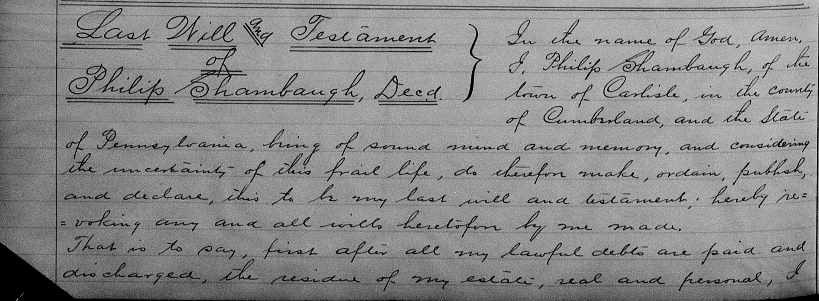 Last Will and Testament
of
Philip Shambaugh, Decd.
In the name of God, Amen.
I, Philip Shambaugh, of the
town of Carlisle, in the county
of Cumberland, and the State
of Pennsylvania, being of sound mind and memory, and considering
the uncertainty of this frail life, do therefore make, ordain, publish,
and declare, this to be my last will and testament; hereby re=
=voking any and all wills heretofore by me made.
That is to say, first after all my lawful debts are paid and
discharged, the residue of my estate, real and personal, I